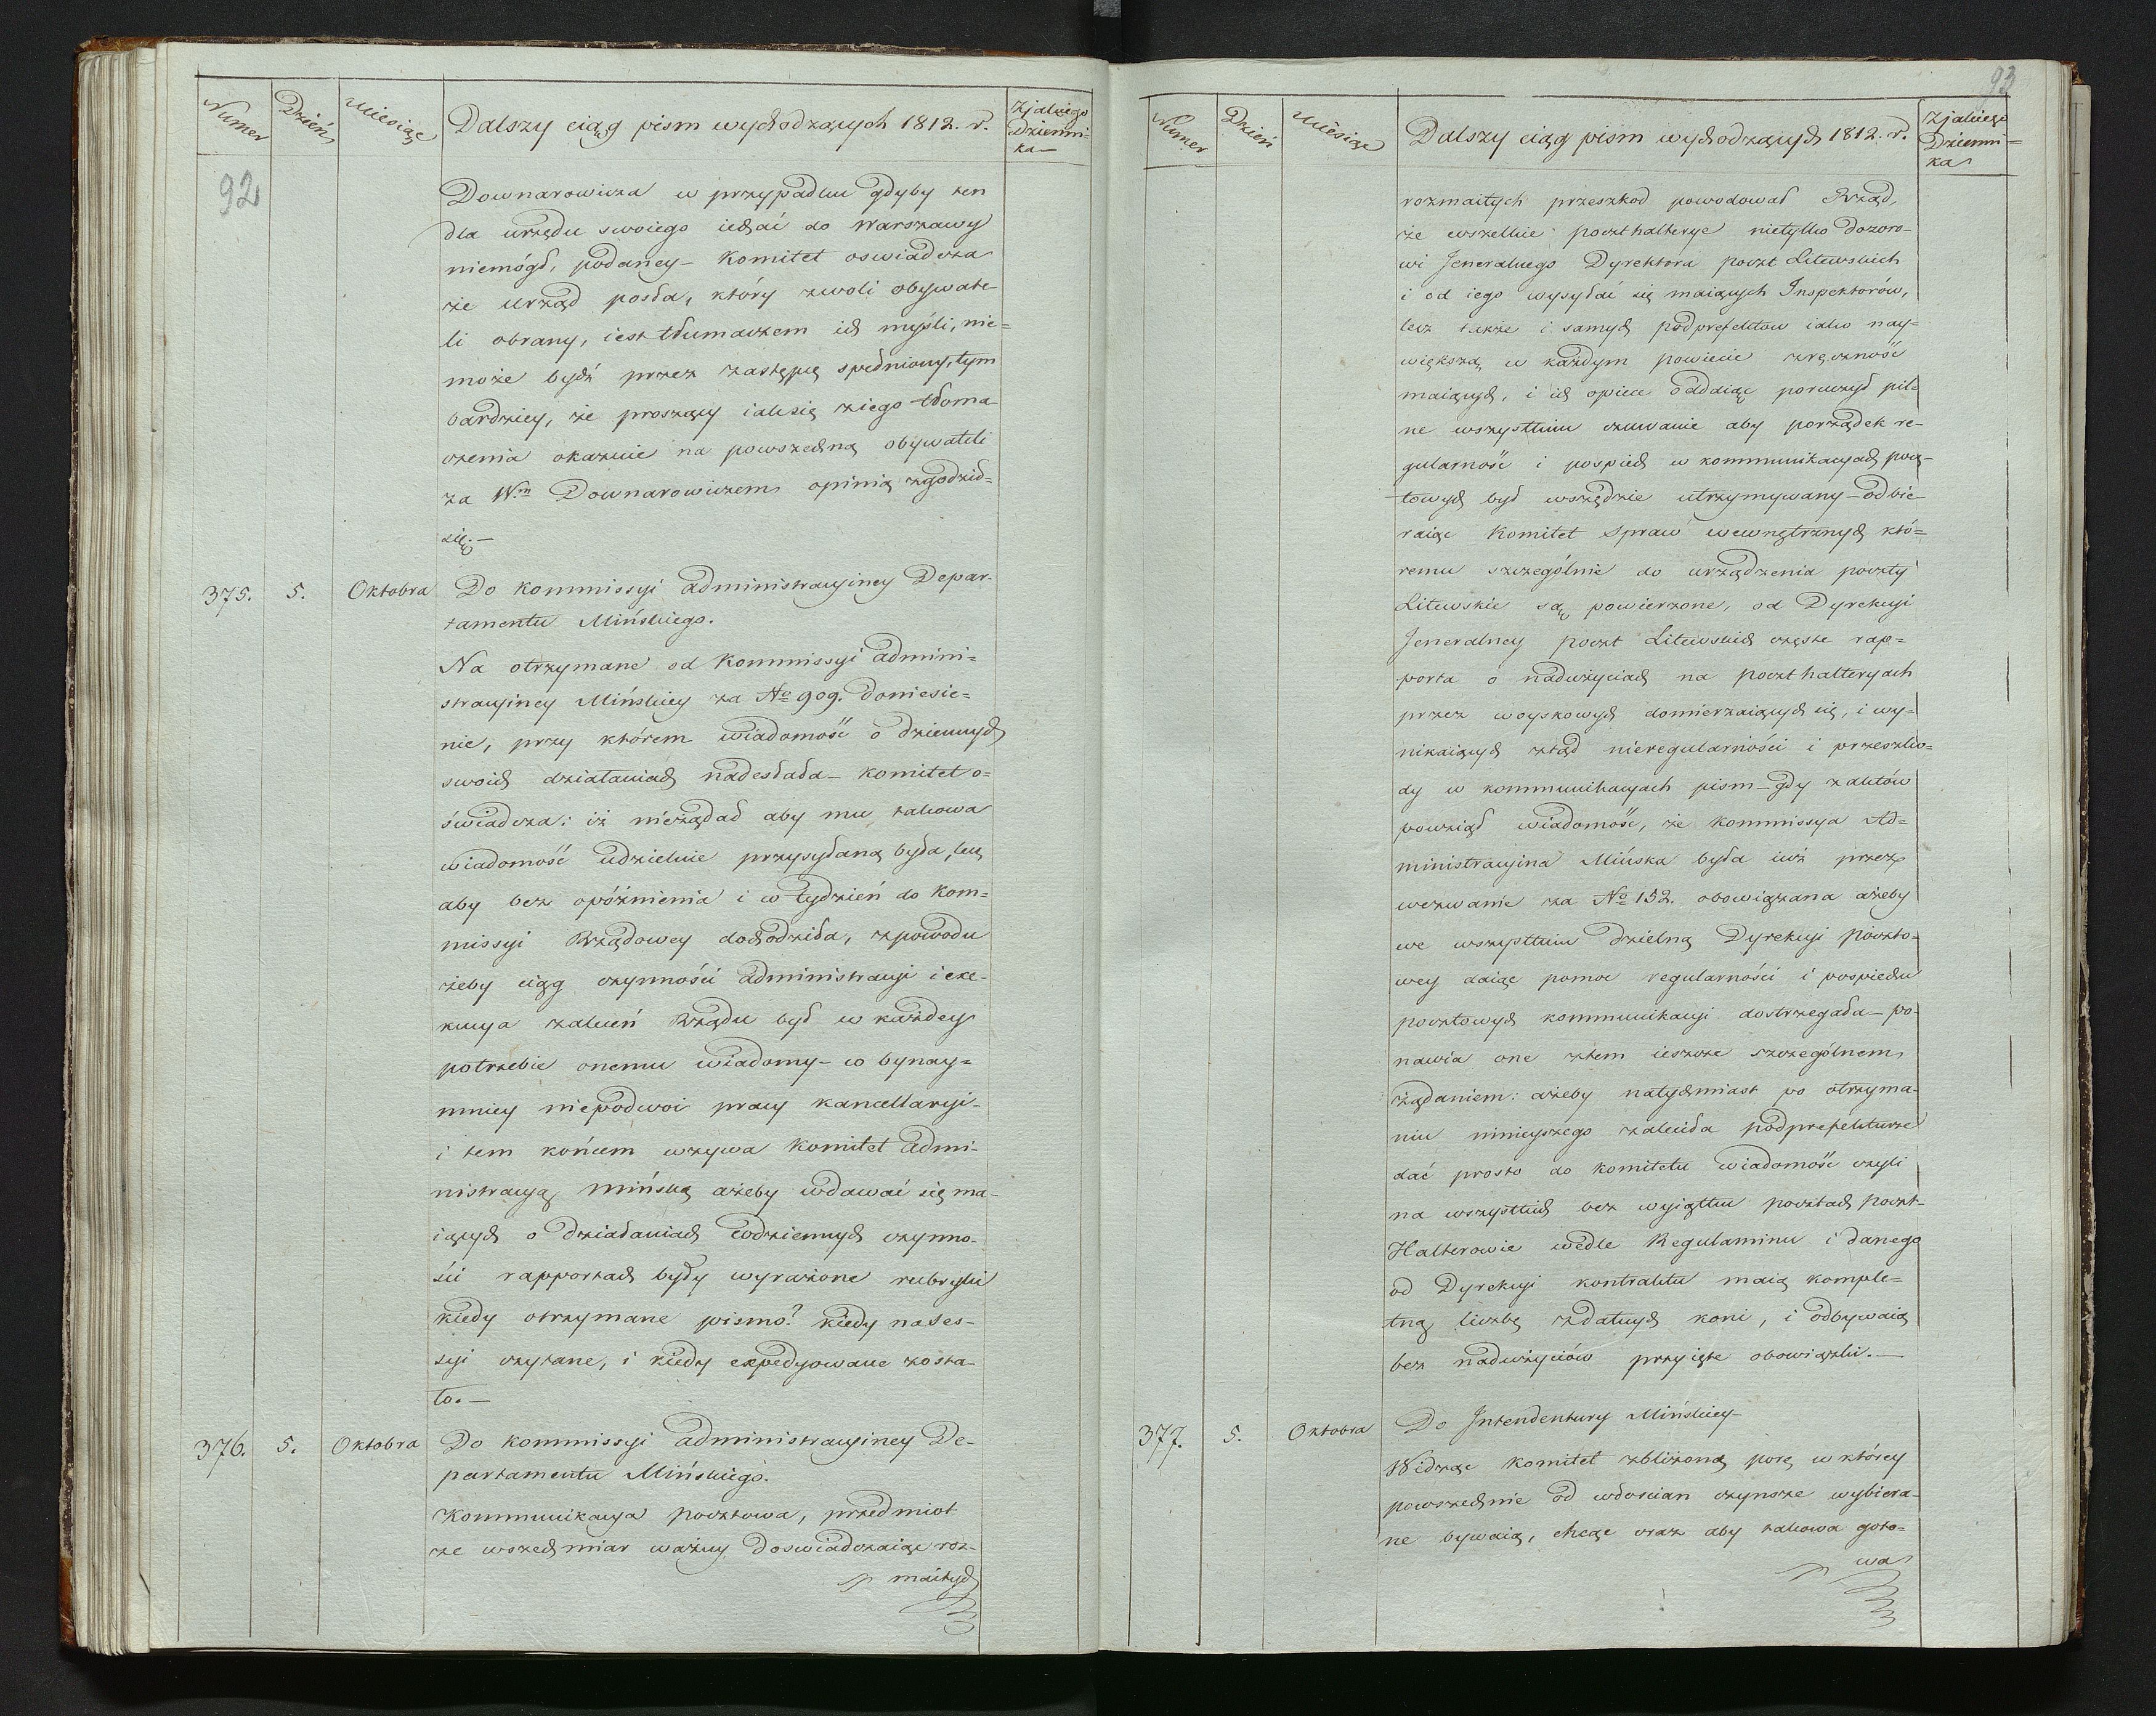 Numer Dzień Miesiąc Dalszy ciąg pism wychodzących 1812. r. Zjakiego Dzienni-
ka
92
Downarowicza w przypadku gdyby ten
dla urzędu swoiego iechać do Warszawy
niemógł, podaney – Komitet oswiadcza
że Urząd posła, który zwoli obywate-
li obrany, iest tłumaczem ich myśli, nie=
może bydź przez zastępcę spełniony, tym
bardziey, że proszący iak się ziego tłoma
czenia okazuie na powszechną obywateli
za Wm Downarowiczem opinią zgodził=
się. –
375. 5. Oktobra Do Kommissyi Administracyiney Depar-
tamentu Mińskiego.
Na otrzymane od Kommissyi Admini=
stracyiney Mińskiey za No 909. doniesie=
nie, przy którem wiadomość o dziennych
swoich działaniach nadesłała – Komitet o=
świadcza: iż nieżądał aby mu takowa
wiadomość udzielnie przysyłaną była, lecz
aby bez opóźnienia i w tydzień do Kom=
missyi Rządowey dochodziła, zpowodu
żeby ciąg czynności Administracyi i exe-
kucya zaleceń Rządu był w każdey
potrzebie onemu wiadomy – co bynay=
mniey niepodwoi pracy kancellaryi –
i tem końcem wzywa Komitet Admi-
nistracyą Mińską ażeby wdawać się ma-
iących o działaniach codziennych czynno-
ści rapportach były wyrażone rubryki
kiedy otrzymane pismo? kiedy na Ses-
syi czytane, i kiedy expedyowane zosta-
ło. –
376. 5. Oktobra Do Kommissyi Administracyiney De-
partamentu Mińskiego.
Kommunikacya pocztowa, przedmiot
ze wszech miar ważny doswiadczaiąc roz-
maitych
93
Numer Dzień Miesiąc Dalszy ciąg pism wychodzących 1812. r. Zjakiego
Dzienni=
ka
rozmaitych przeszkod powodował Rząd,
że wszelkie poczthalterye nietylko dozoro-
wi Jeneralnego Dyrektora poczt Litewskich
i od iego wysyłać się maiących Inspektorów,
lecz także i samych podprefektow iako nay=
większą w każdym powiecie zręczność
maiących, i ich opiece oddaiąc poruczył pil=
ne wszystkim czuwanie aby porządek re-
gularność i pospiech w kommunikacyach pocz-
towych był wszędzie utrzymywany – odbie-
raiąc Komitet Spraw wewnętrznych któ=
remu szczególnie do urządzenia poczty
Litewskie są powierzone, od Dyrekcyi
Jeneralney poczt Litewskich częste rap=
porta o nadużyciach na poczthalteryach
przez woyskowych domierzaiących się, i wy=
nikaiących ztąd nieregularności i przeszko=
dy w kommunikacyach pism – gdy zaktów
powziął wiadomość, że Kommissya Ad=
ministracyina Mińska była iuż przez
wezwanie za No 152. obowiązana ażeby
we wszystkim dzielną Dyrekcyi Poczto-
wey daiąc pomoc regularności i pospiechu
pocztowych kommunikacyi dostrzegała – po-
nawia one ztem ieszcze szczególnem
żądaniem: ażeby natychmiast po otrzyma-
niu ninieyszego zaleciła podprefekturze
dać prosto do Komitetu wiadomość czyli
na wszystkich bez wyiątku pocztach poczt-
Halterowie wedle Regulaminu i danego
od Dyrekcyi kontraktu maią komple=
tną liczbę zdatnych koni, i odbywaią
bez nadużyciów przyięte obowiązki. –
377. 5. Oktobra Do Intendentury Mińskiey –
Widząc Komitet zbliżoną porę w którey
powszechnie od włoscian czynsze wybiera-
ne bywaią, chcąc oraz aby takowa goto=
wa